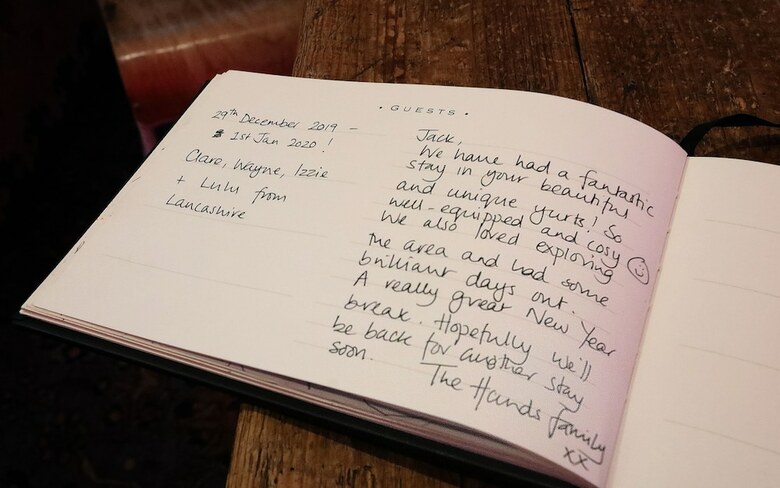 • GUESTS •
29th December 2019 –
1st Jan 2020 !
Clare, Wayne, Izzie
+ Lulu from
Lancashire
Jack,
We have had a fantastic
stay in your beautiful
and unique yurts! So
well-equipped and cosy ☺
We also loved exploring
the area and had some
brilliant days out.
A really great New Year
break. Hopefully we'll
be back for another stay
soon.
The Hands family
xx